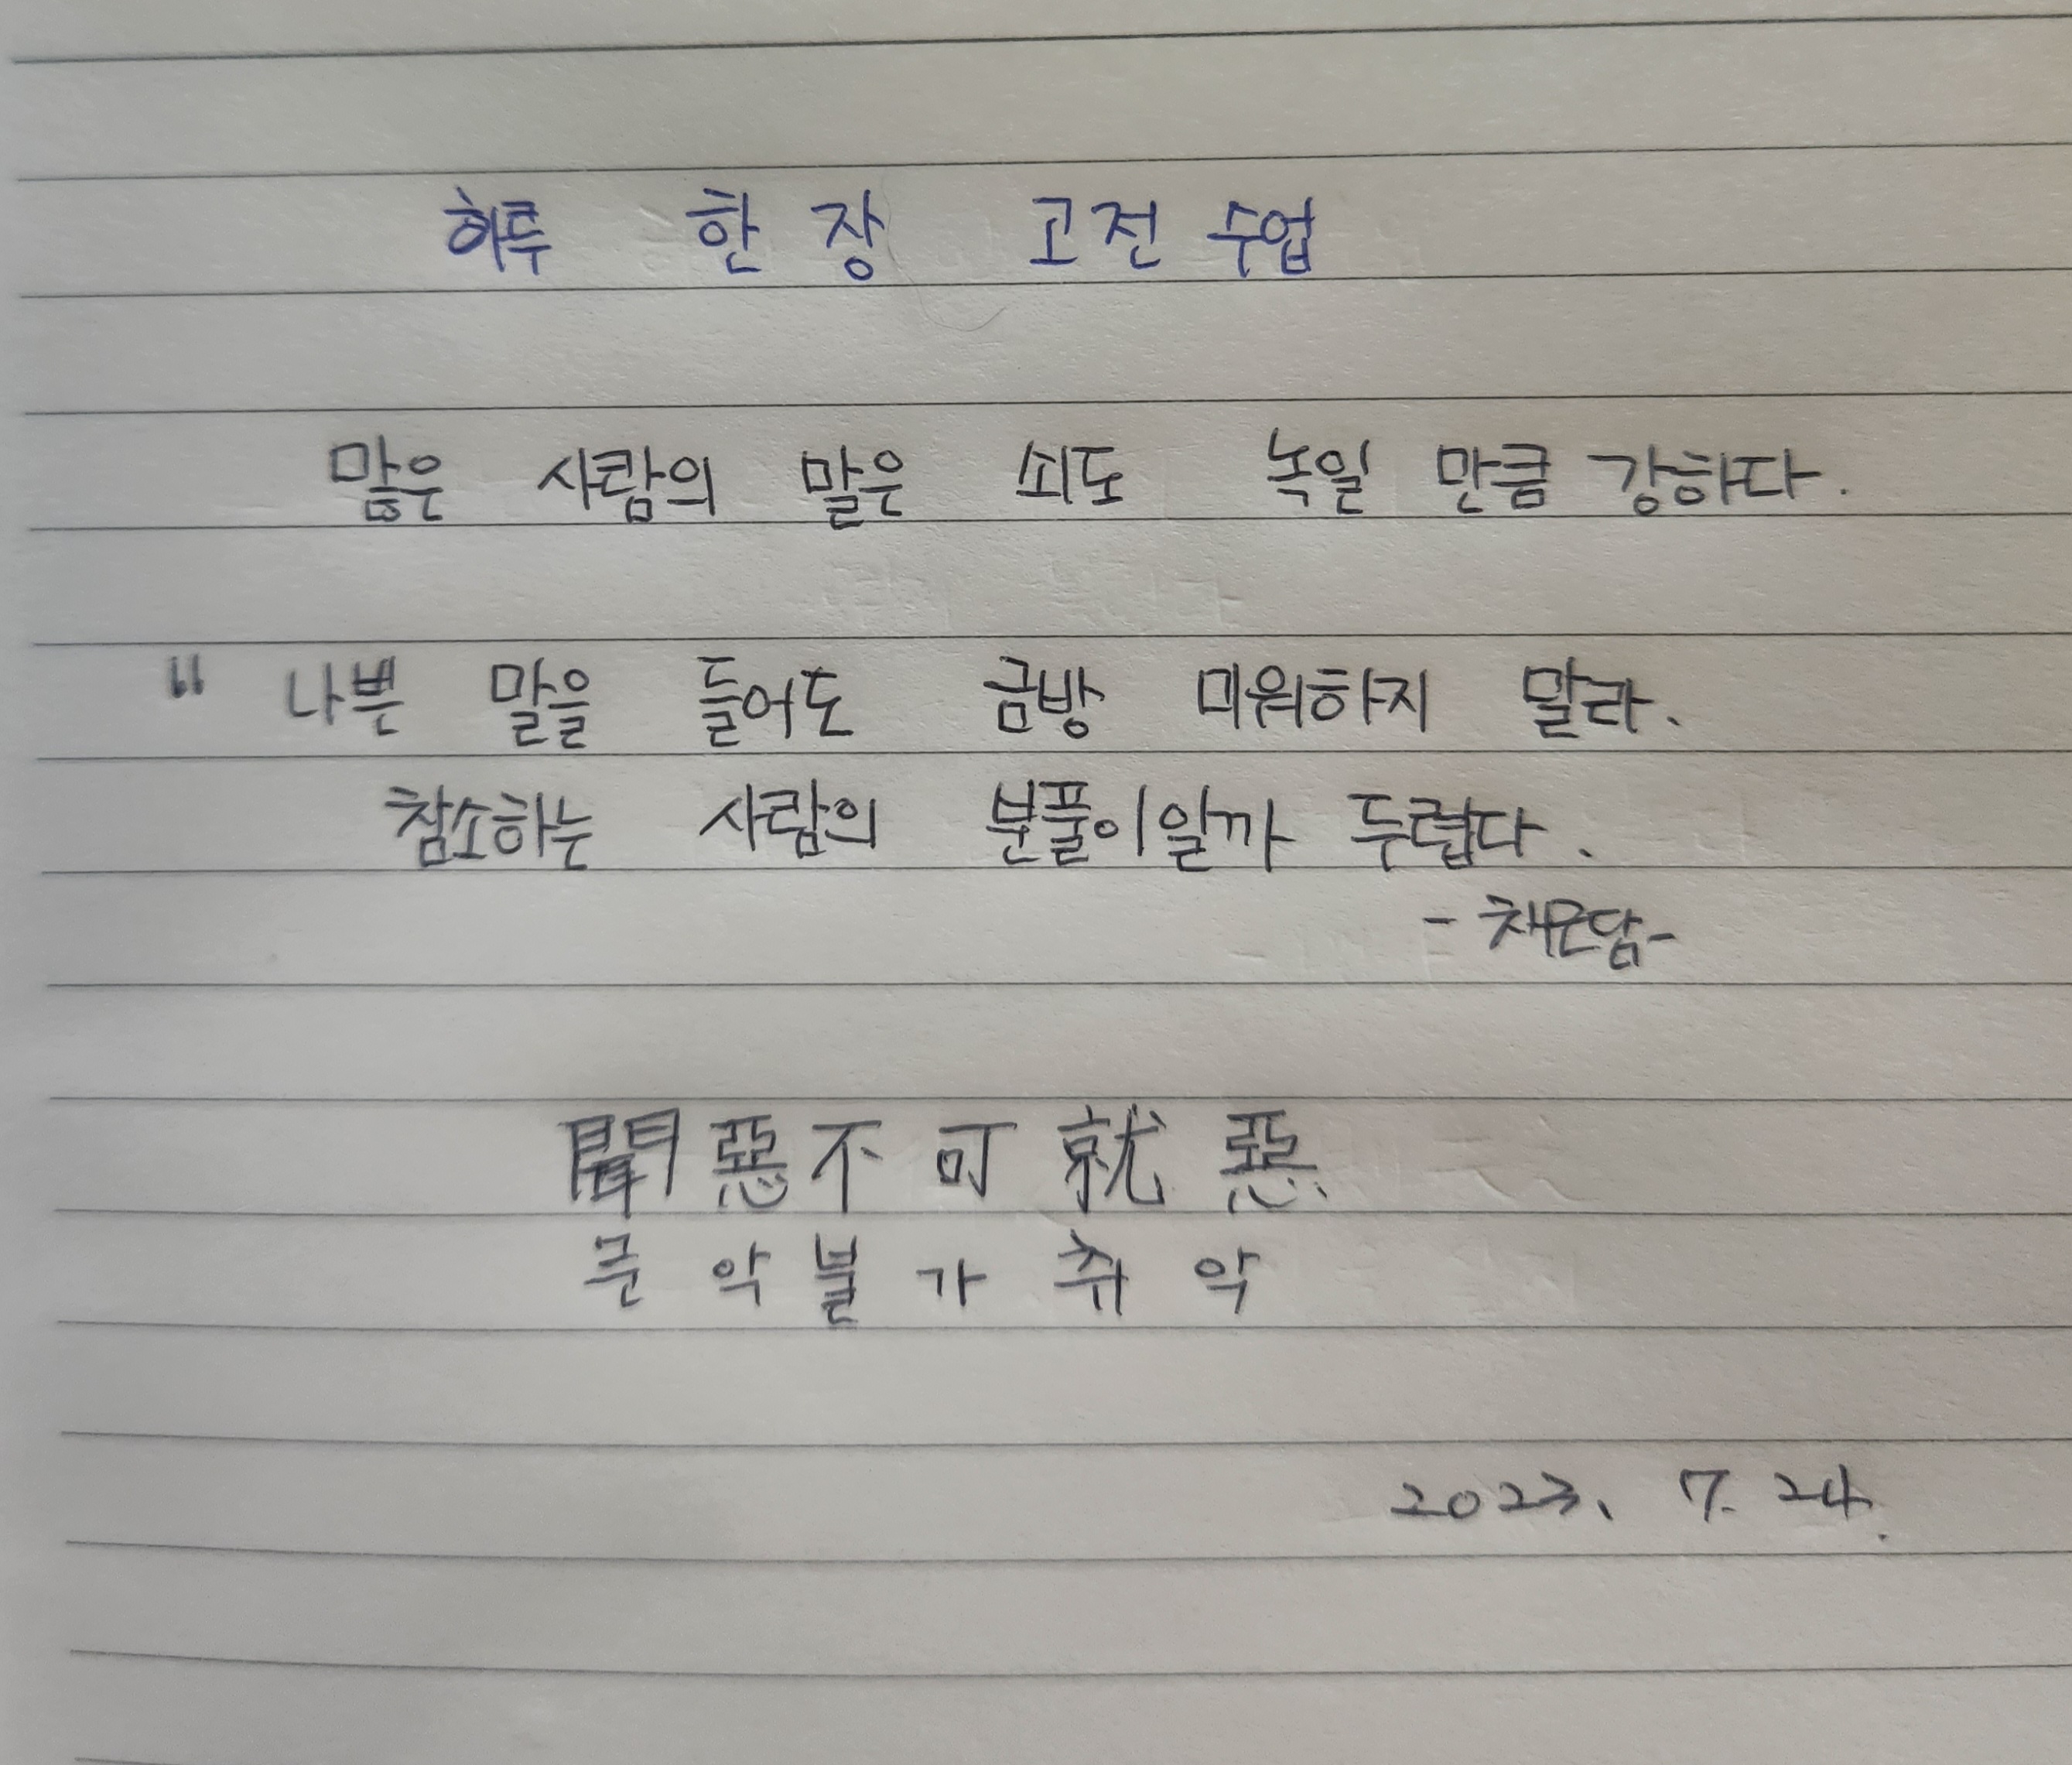 하루 한 장 고전 수업
많은 사람의 말은 쇠도 녹일 만큼 강하다.
" 나쁜 말을 들어도 금방 미워하지 말라.
참소하는 사람의 분풀이일까 두렵다.
- 채근담 -
聞惡不可就惡
문악불가취악
2023. 7. 24.